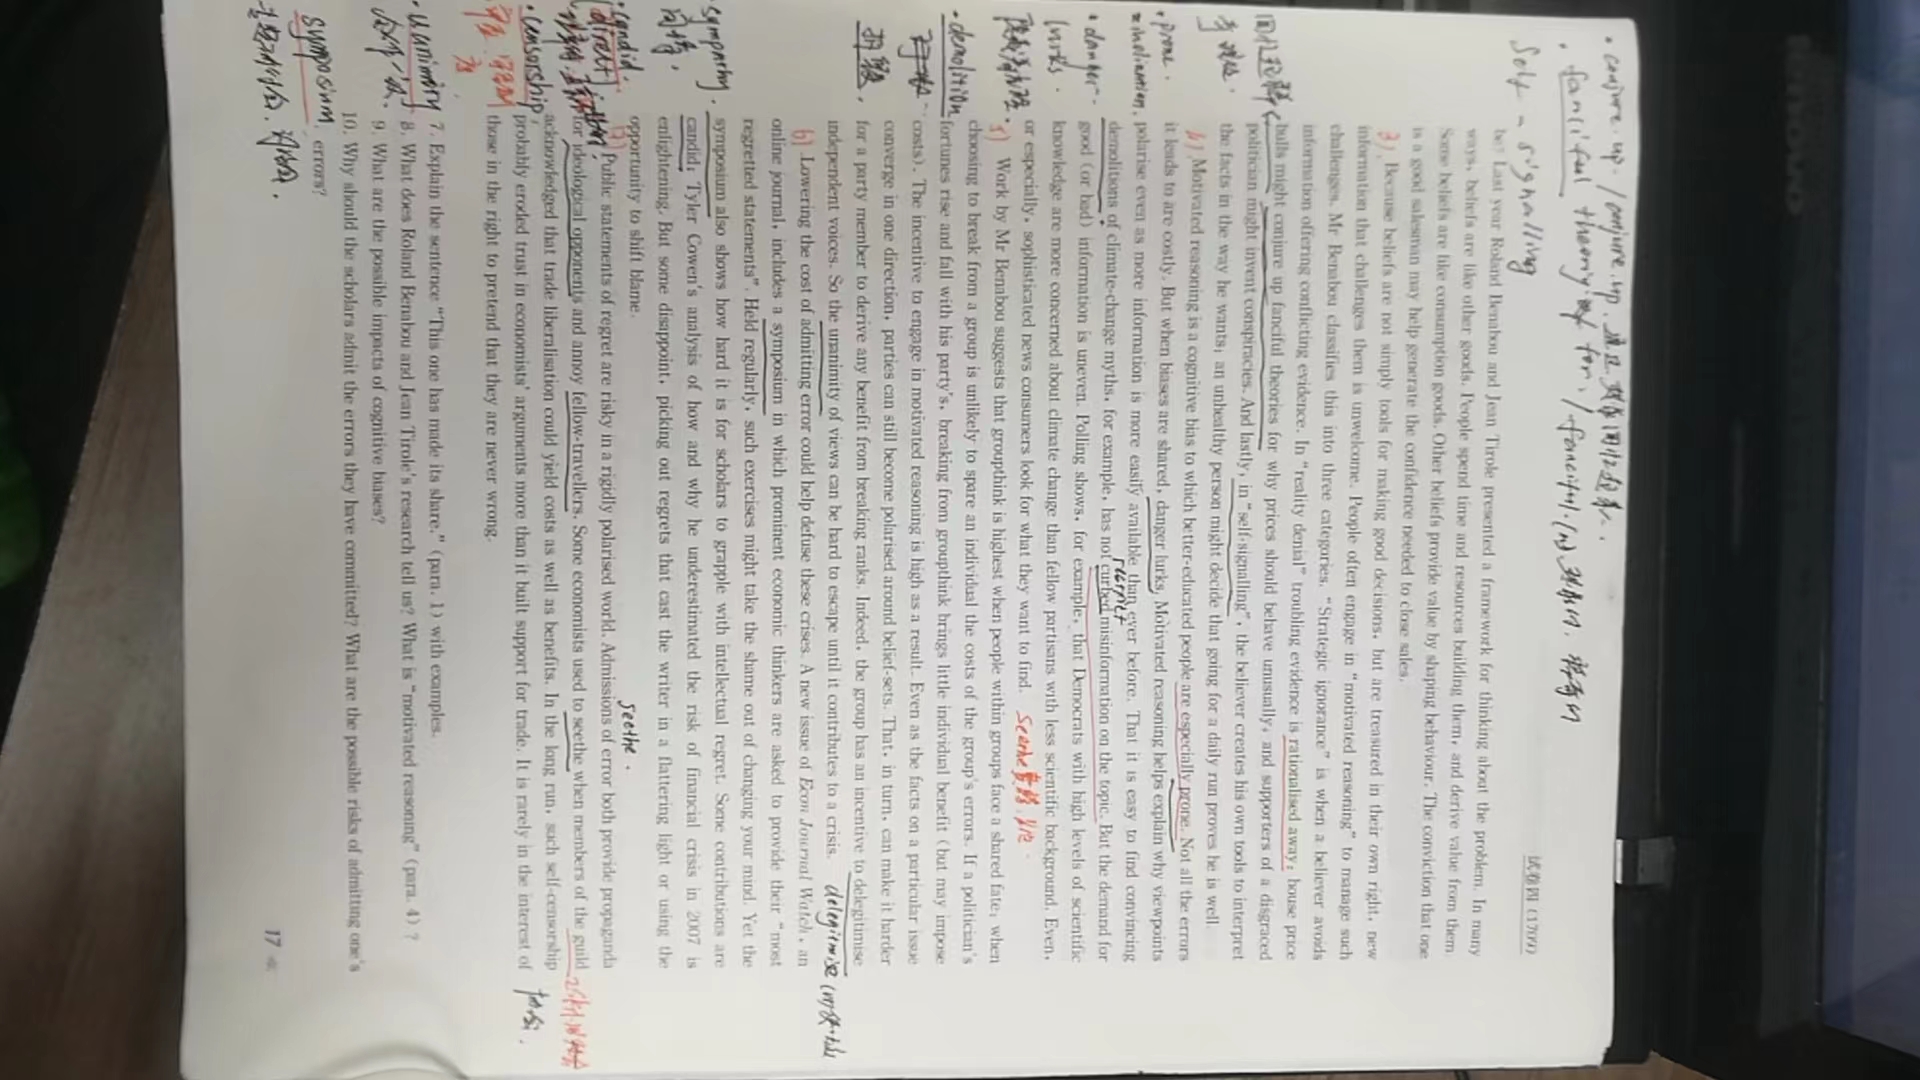 · conjure · up · / conjure · up.
· fanciful theory of for, / fanciful.
Self - signalling
试卷四 (1709)
be? Last year Roland Benabou and Jean Tirole presented a framework for thinking about the problem. In many
ways, beliefs are like other goods. People spend time and resources building them, and derive value from them.
Some beliefs are like consumption goods. Other beliefs provide value by shaping behaviour. The conviction that one
is a good salesman may help generate the confidence needed to close sales.
3) Because beliefs are not simply tools for making good decisions, but are treasured in their own right, new
information that challenges them is unwelcome. People often engage in "motivated reasoning" to manage such
challenges. Mr Benabou classifies this into three categories. "Strategic ignorance" is when a believer avoids
information offering conflicting evidence. In "reality denial" troubling evidence is rationalised away: house price
bulls might conjure up fanciful theories for why prices should behave unusually, and supporters of a disgraced
politician might invent conspiracies. And lastly, in "self-signalling", the believer creates his own tools to interpret
the facts in the way he wants: an unhealthy person might decide that going for a daily run proves he is well.
4) Motivated reasoning is a cognitive bias to which better-educated people are especially prone. Not all the errors
· prone ·
it leads to are costly. But when biases are shared, danger lurks. Motivated reasoning helps explain why viewpoints
polarise even as more information is more easily available than ever before. That it is easy to find convincing
demolitions of climate-change myths, for example, has not curbed misinformation on the topic. But the demand for
· danger ·
good (or bad) information is uneven. Polling shows, for example, that Democrats with high levels of scientific
lurks ·
knowledge are more concerned about climate change than fellow partisans with less scientific background. Even,
or especially, sophisticated news consumers look for what they want to find.
5) Work by Mr Benabou suggests that groupthink is highest when people within groups face a shared fate: when
choosing to break from a group is unlikely to spare an individual the costs of the group's errors. If a politician's
· demolition
fortunes rise and fall with his party's, breaking from groupthink brings little individual benefit (but may impose
costs). The incentive to engage in motivated reasoning is high as a result. Even as the facts on a particular issue
converge in one direction, parties can still become polarised around belief-sets. That, in turn, can make it harder
for a party member to derive any benefit from breaking ranks. Indeed, the group has an incentive to delegitimise
independent voices. So the unanimity of views can be hard to escape until it contributes to a crisis.
6) Lowering the cost of admitting error could help defuse these crises. A new issue of Econ Journal Watch, an
online journal, includes a symposium in which prominent economic thinkers are asked to provide their "most
regretted statements". Held regularly, such exercises might take the shame out of changing your mind. Yet the
· sympathy.
symposium also shows how hard it is for scholars to grapple with intellectual regret. Some contributions are
candid; Tyler Cowen's analysis of how and why he underestimated the risk of financial crisis in 2007 is
enlightening. But some disappoint, picking out regrets that cast the writer in a flattering light or using the
· candid.
opportunity to shift blame.
seethe ·
direct
Public statements of regret are risky in a rigidly polarised world. Admissions of error both provide propaganda
for ideological opponents and annoy fellow-travellers. Some economists used to seethe when members of the guild
acknowledged that trade liberalisation could yield costs as well as benefits. In the long run, such self-censorship
· censorship
probably eroded trust in economists' arguments more than it built support for trade. It is rarely in the interest of
those in the right to pretend that they are never wrong.
· Unanimity
7. Explain the sentence "This one has made its share." (para. 1) with examples.
8. What does Roland Benabou and Jean Tirole's research tell us? What is "motivated reasoning" (para. 4)?
9. What are the possible impacts of cognitive biases?
10. Why should the scholars admit the errors they have committed? What are the possible risks of admitting one's
errors?
symposium
17